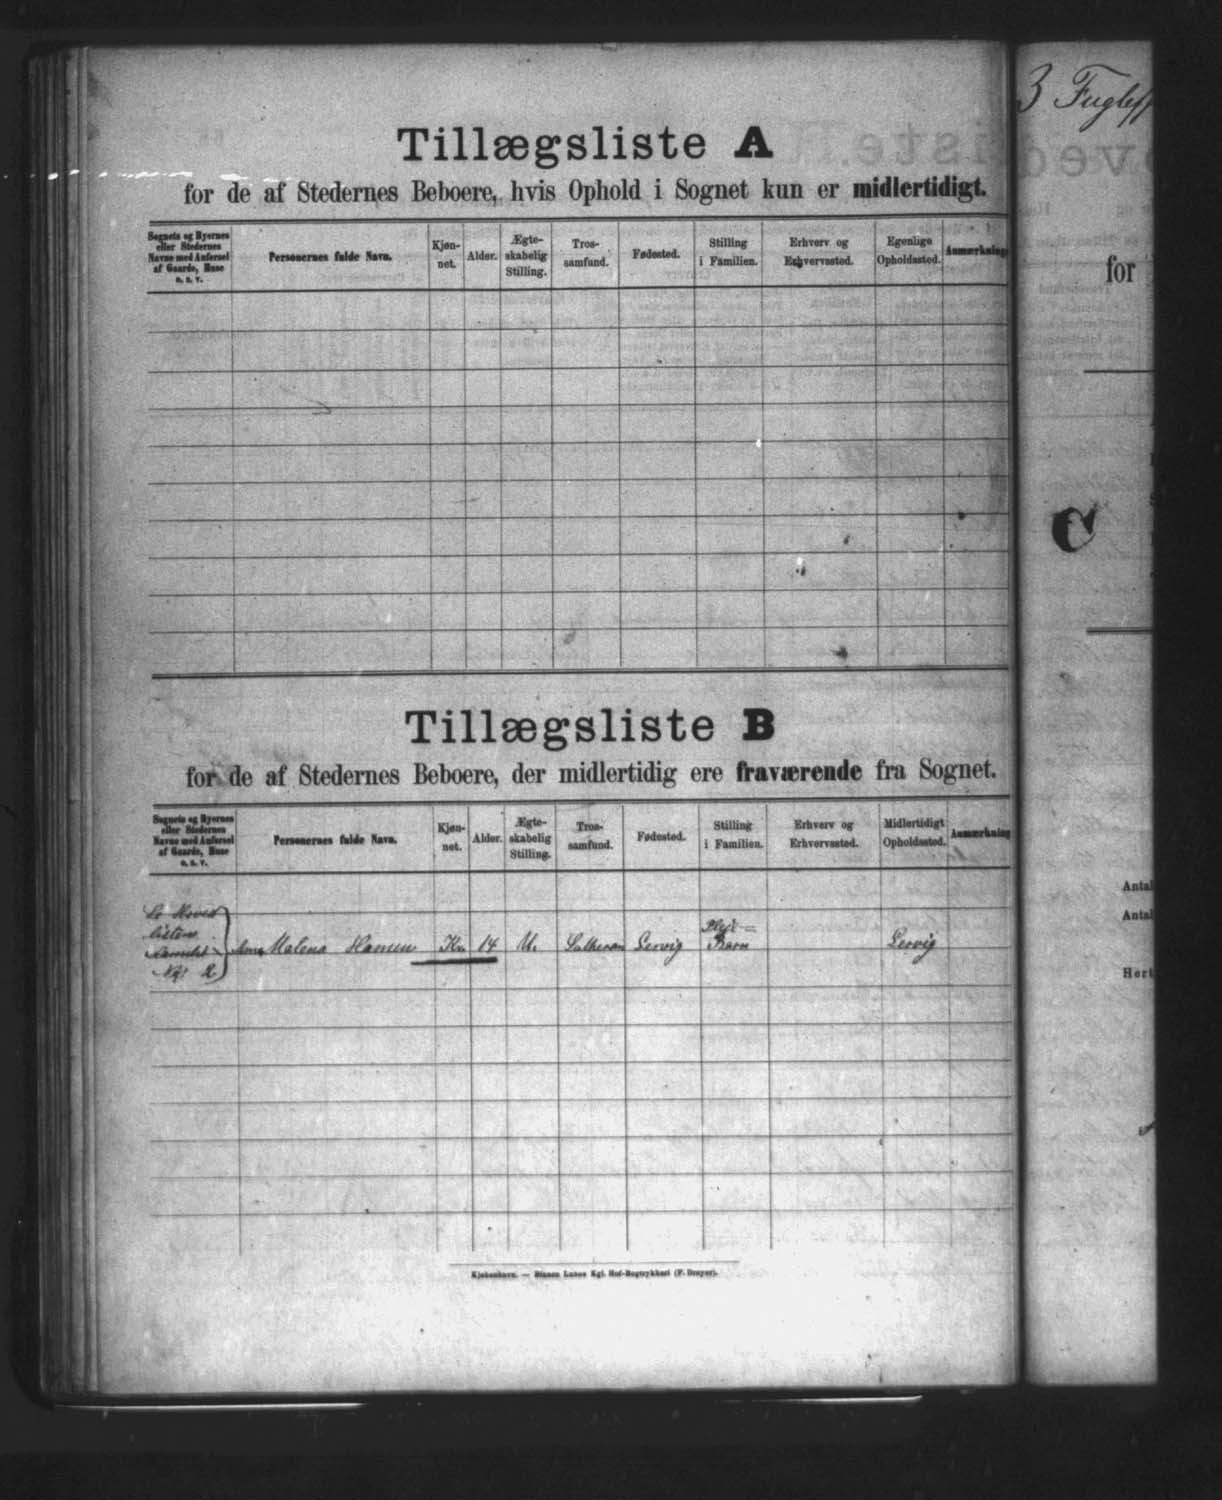 Tillægsliste A
for de af Stedernes Beboere, hvis Ophold i Sognet kun er midlertidigt.
Sognets og Byernes eller Stedernes Navne med Anførsel af Gaarde, Huse o. s. v.
Personernes fulde Navn.
Kjøn-net.
Alder.
Ægte-skabelig Stilling.
Tros-samfund.
Fødested.
Stilling i Familien.
Erhverv og Erhvervssted.
Egenlige Opholdssted.
Anmærkning
Tillægsliste B
for de af Stedernes Beboere, der midlertidig ere fraværende fra Sognet.
Sognets og Byernes eller Stedernes Navne med Anførsel af Gaarde, Huse o. s. v.
Personernes fulde Navn.
Kjøn-net.
Alder.
Ægte-skabelig Stilling.
Tros-samfund.
Fødested.
Stilling i Familien.
Erhverv og Erhvervssted.
Midlertidigt Opholdssted.
Anmærkning
listens
2
Malena Hansen
14
U.
Lutheran
Plej=
Barn
Kjøbenhavn. — Bianco Lunos Kgl. Hof-Bogtrykkeri (F. Dreyer).
3
for
C
Antal
Antal
Hert